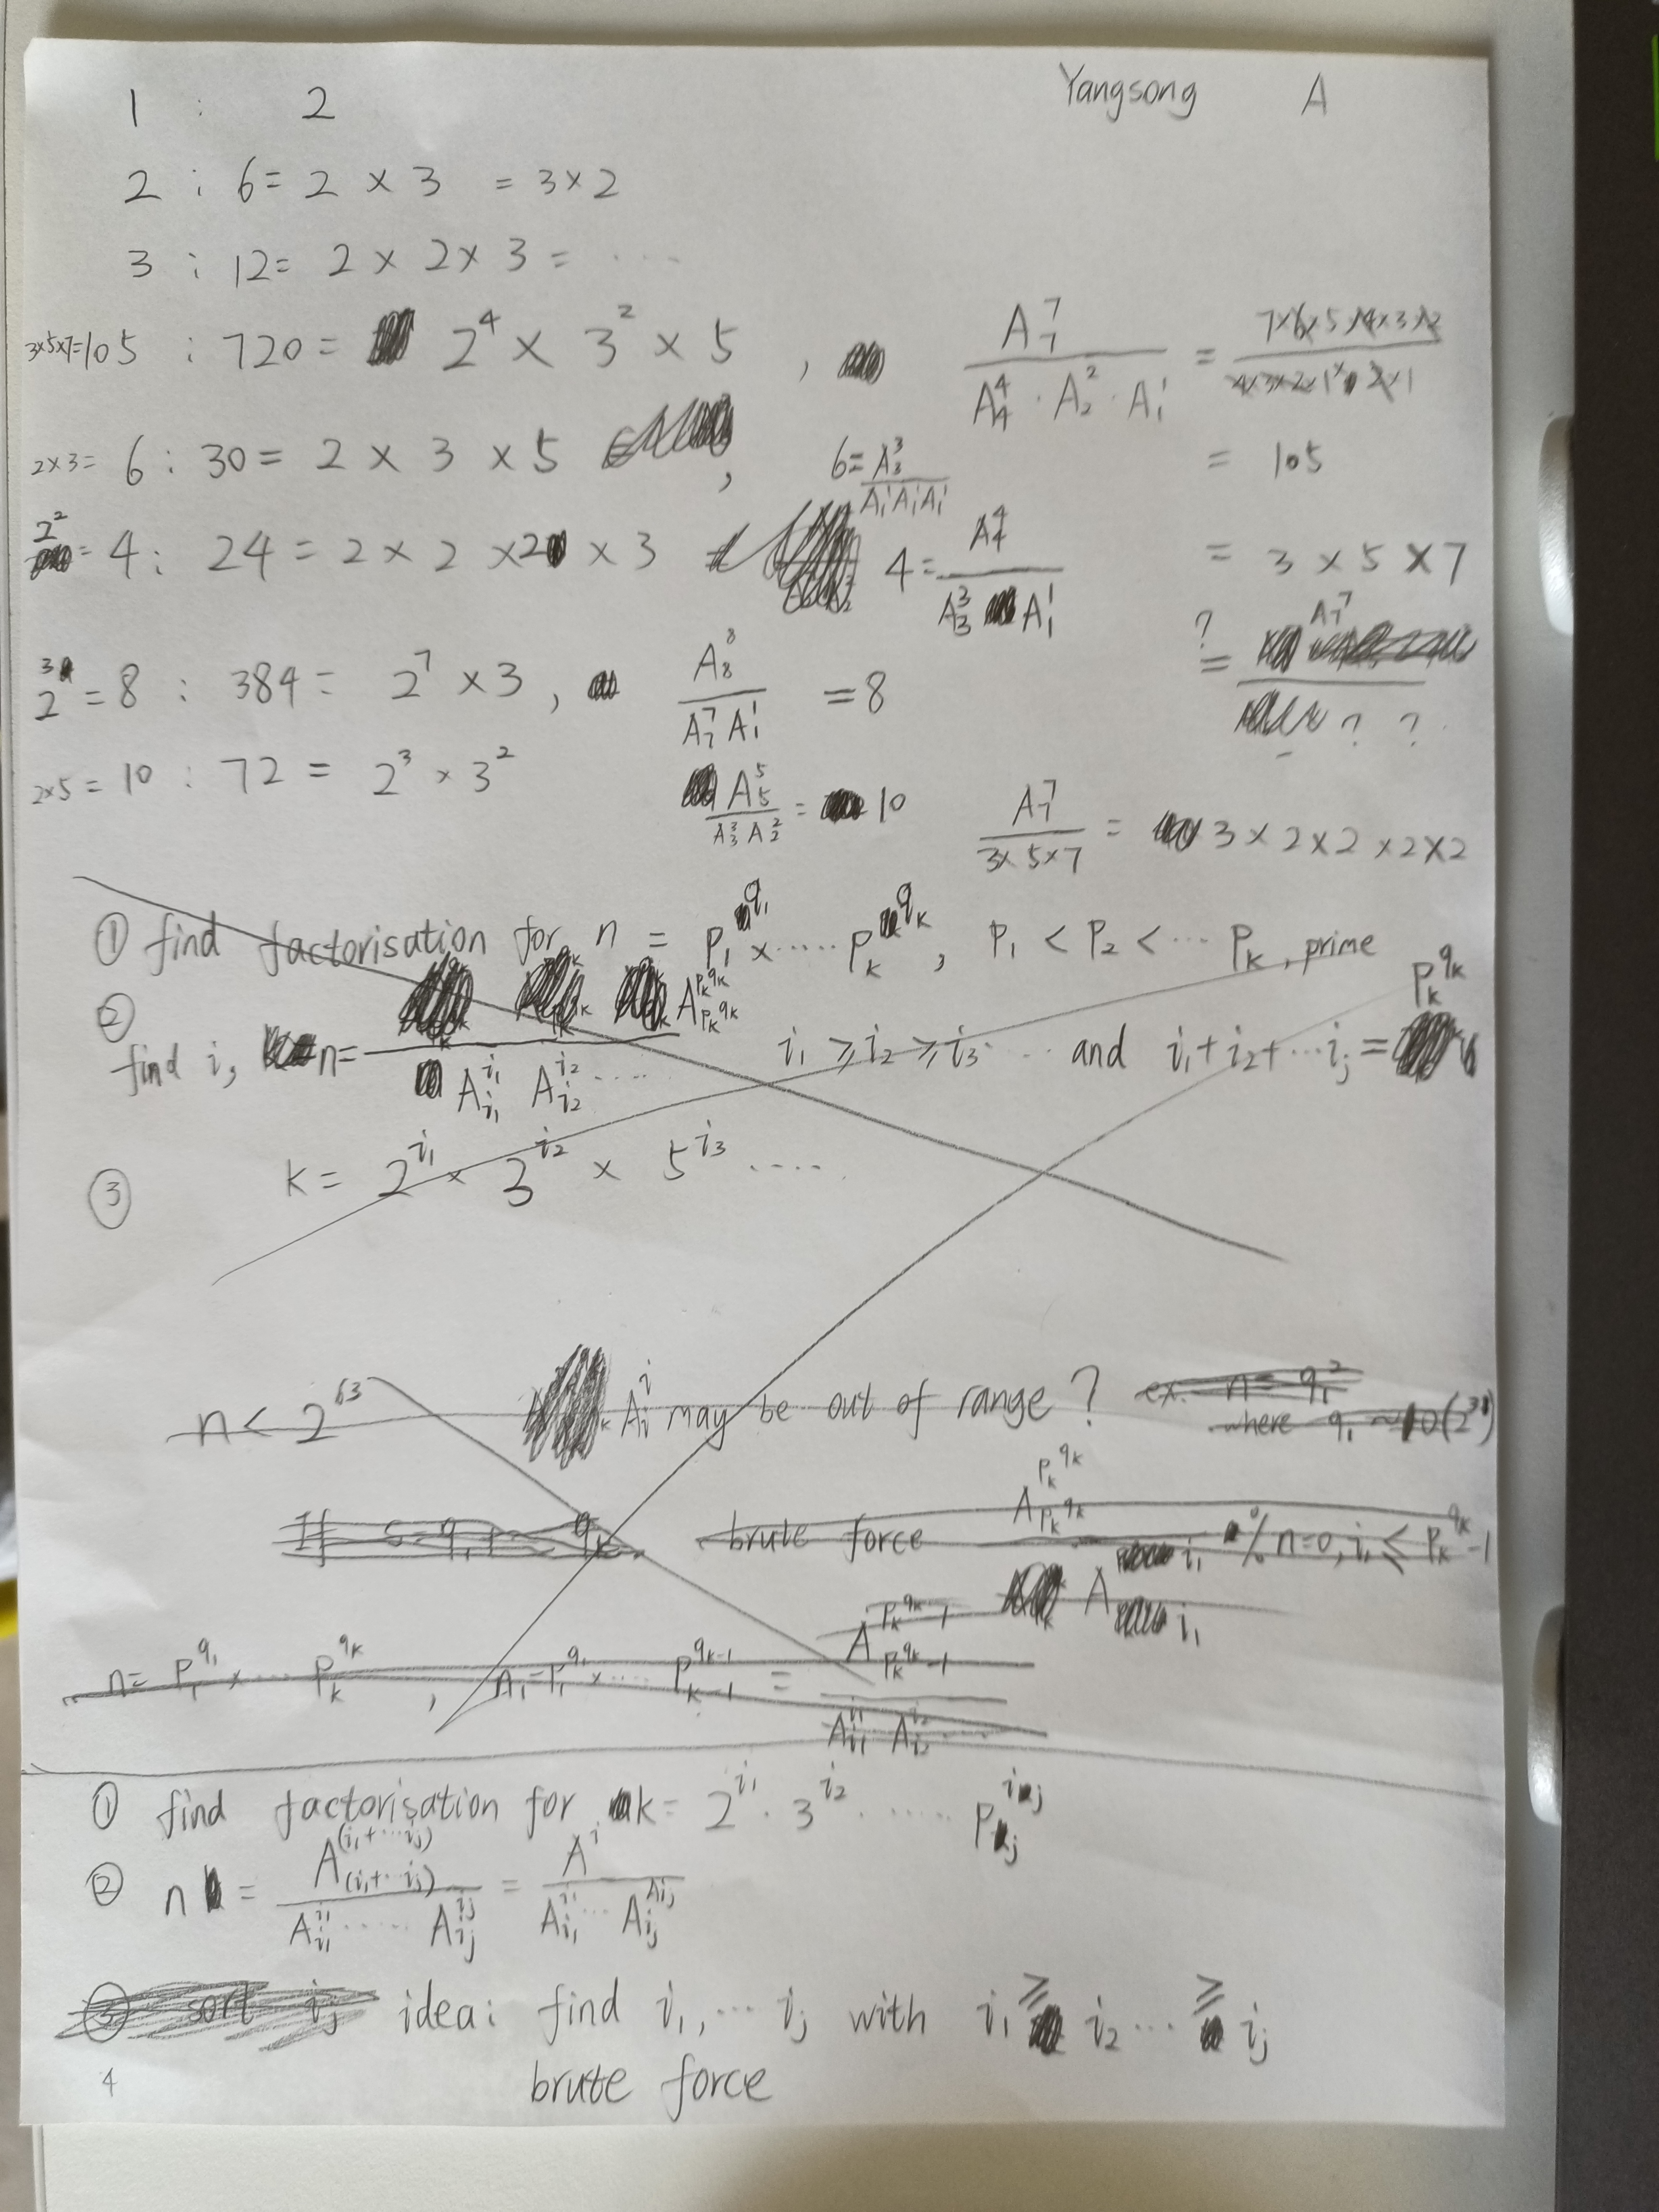 Yangsong A
1 : 2
2 : 6 = 2 × 3 = 3 × 2
3 : 12 = 2 × 2 × 3 = ...
3×5×7=105 : 720 = 2^4 × 3^2 × 5 , A_7^7 / (A_4^4 · A_2^2 · A_1^1) = 7×6×5×4×3×2 / 4×3×2×1×2×1
2×3= 6 : 30 = 2 × 3 × 5 , 6 = A_3^3 / (A_1^1 A_1^1 A_1^1) = 105
2^2 = 4 : 24 = 2 × 2 × 2 × 3 4 = A_4^4 / (A_3^3 A_1^1) = 3 × 5 × 7
2^3 = 8 : 384 = 2^7 × 3 , A_8^8 / (A_7^7 A_1^1) = 8 ?= A_7^7 / ? ?
2×5 = 10 : 72 = 2^3 × 3^2 A_5^5 / (A_3^3 A_2^2) = 10 A_7^7 / (3×5×7) = 3 × 2 × 2 × 2 × 2
① find factorisation for n = p_1^{q_1} × ..... p_k^{q_k} , p_1 < p_2 < ... p_k , prime
② find i, n = A_{p_k^{q_k}}^{p_k^{q_k}} / (A_{i_1}^{i_1} A_{i_2}^{i_2} .....) i_1 ⩾ i_2 ⩾ i_3 ... and i_1 + i_2 + ... i_j = p_k^{q_k}
③ k = 2^{i_1} × 3^{i_2} × 5^{i_3} ....
n < 2^{63} A_i^i may be out of range ? ex. n = q_1^2
where q_1 ~ O(2^{31})
If brute force A_{p_k^{q_k}}^{p_k^{q_k}} / A_{i_1}^{i_1} % n=0, i_1 ⩽ p_k^{q_k}-1
n = p_1^{q_1} × ... p_k^{q_k} , n_1 = p_1^{q_1} × .... p_{k-1}^{q_{k-1}} = A_{p_k^{q_k}-1}^{p_k^{q_k}-1} / (A_{i_1}^{i_1} A_{i_2}^{i_2} ....)
① find factorisation for k = 2^{i_1} · 3^{i_2} · ..... p_j^{i_j}
② n = A_{(i_1+...i_j)}^{(i_1+...i_j)} / (A_{i_1}^{i_1} ..... A_{i_j}^{i_j}) = A^i / (A_{i_1}^{i_1} ... A_{i_j}^{i_j})
③ sort i_j idea: find i_1, ... i_j with i_1 ⩾ i_2 ... ⩾ i_j
4 brute force